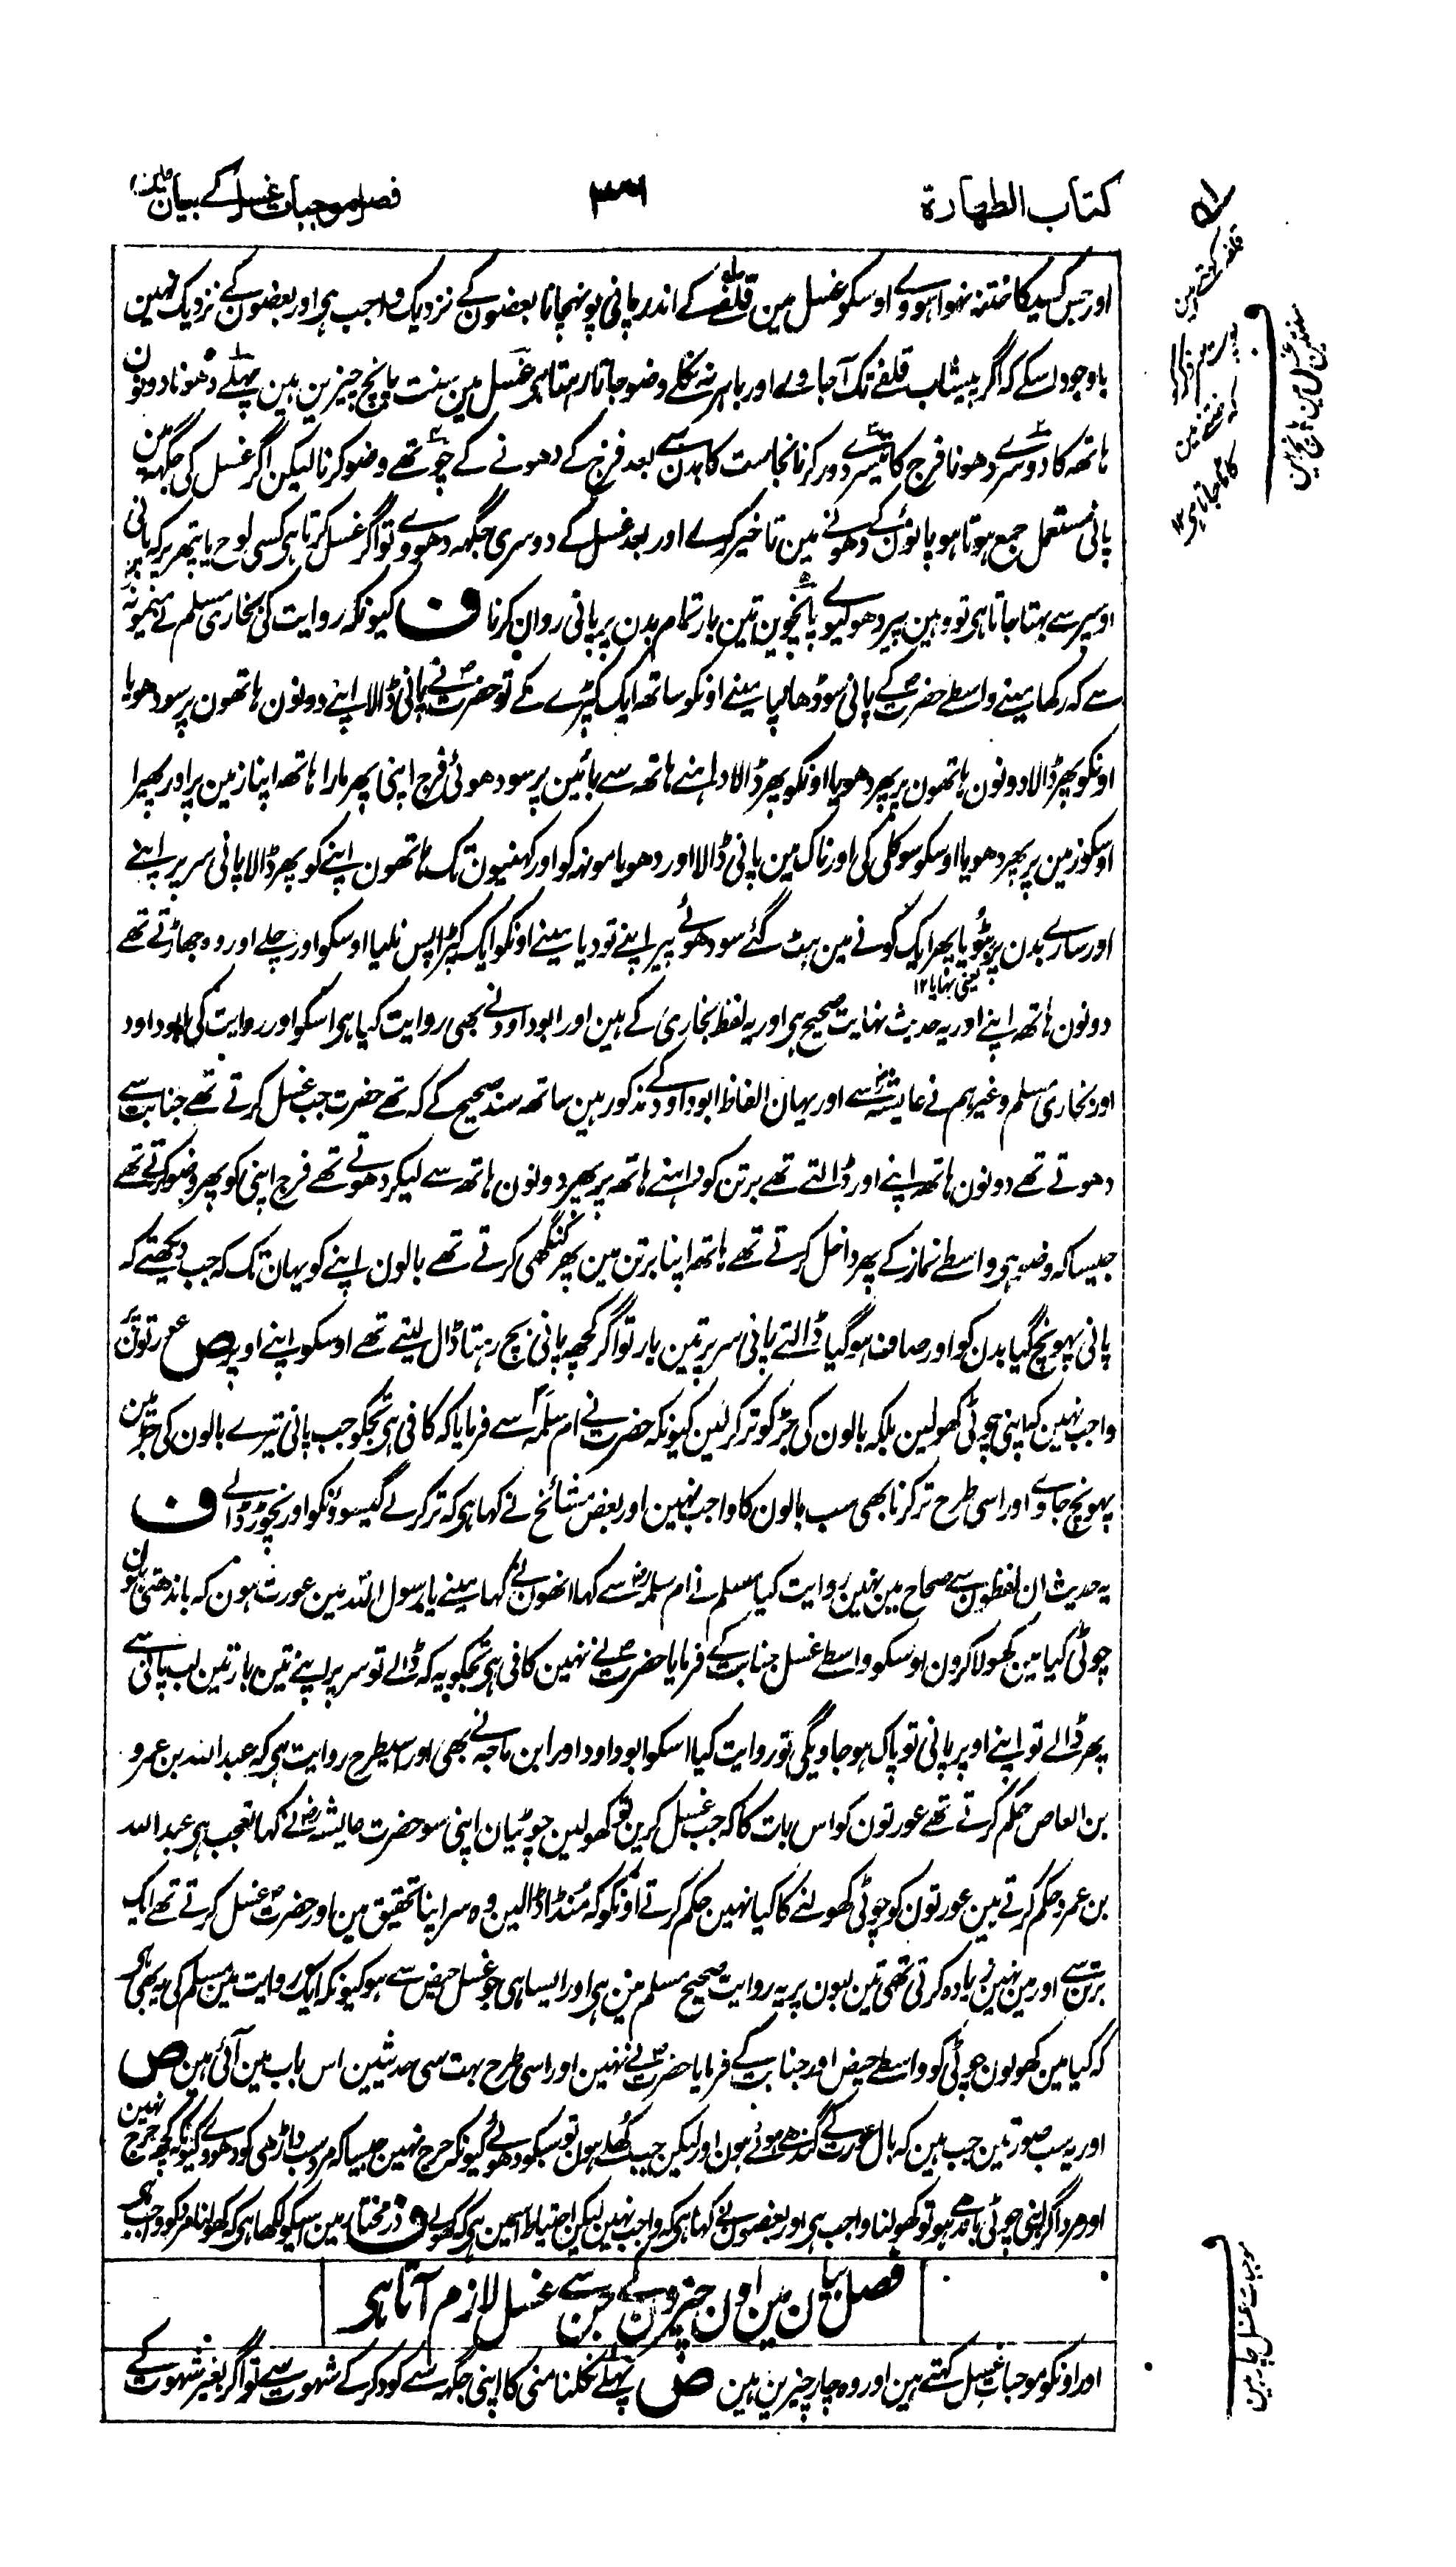 کتاب الطهارة
۳۶
فصل موجبات غسل کے بیان مین
اور جس کسیکا ختنہ نہوا ہووے اوسکو غسل مین قلفے کے اندر پانی پونہچانا بعضون کے نزدیک واجب ہی اور بعضون کے نزدیک نہین
باوجود اسکے کہ اگر پیشاب قلفے تک آجاوے اور باہر نہ نکلے وضو جاتا رہتا ہی غسل مین سنت پانچ چیزین ہین پہلے دھونا دونون
ہاتھ کا دوسرے دھونا فرج کا تیسرے دور کرنا نجاست کا بدن سے بعد فرج کے دھونے کے چوتھے وضو کرنا لیکن اگر غسل کی جگہہ مین
پانی مستعمل جمع ہوتا ہو پانوُن کے دھونے مین تاخیر کرے اور بعد غسل کے دوسری جگہہ دھووے تو اگر غسل کرتا ہی کسی لوح یا پتھر پر کہ پانی
اوسپر سے بہتا جاتا ہی تو وہین پیر دھو لیوے پانچوین تین بار تمام بدن پر پانی روان کرنا ف کیونکہ روایت کی بخاری مسلم نے میمونہ
سے کہ رکھا مینے واسطے حضرت کے پانی سو ڈھانپا مینے اونکو ساتھ ایک کپڑے کے تو حضرت نے پانی ڈالا اپنے دونون ہاتھون پر سو دھویا
اونکو پھر ڈالا دونون ہاتھون پر پھر دھویا اونکو پھر ڈالا داہنے ہاتھ سے بائین پر سو دھوئی فرج اپنی پھر مارا ہاتھ اپنا زمین پر اور پھیرا
اوسکو زمین پر پھر دھویا اوسکو سو کلی کی اور ناک مین پانی ڈالا اور دھویا مونہہ کو اور کہنیون تک ہاتھون اپنے کو پھر ڈالا پانی سر پر اپنے
اور سارے بدن پر بٹُویا پھر ایک کونے مین ہٹ گئے سو دھوئے پیر اپنے تو دیا مینے اونکو ایک کپڑا پس نلیا اوسکو اور چلے اور وہ جھاڑتے تھے
یعنی نہایا ۱۲
دونون ہاتھ اپنے اور یہ حدیث نہایت صحیح ہی اور یہ لفظ بخاری کے ہین اور ابوداود نے بھی روایت کیا ہی اسکو اور روایت کی ابوداود
اور بخاری مسلم وغیرہم نے عایشہ سے اور یہان الفاظ ابوداود کے مذکور ہین ساتھ سند صحیح کے کہ تھے حضرت جب غسل کرتے تھے جنابت سے
دھوتے تھے دونون ہاتھ اپنے اور ڈالتے تھے برتن کو داہنے ہاتھ پر پھر دونون ہاتھ سے لیکر دھوتے تھے فرج اپنی کو پھر وضو کرتے تھے
جیسا کہ وضو ہی واسطے نماز کے پھر داخل کرتے تھے ہاتھ اپنا برتن مین پھر کنگھی کرتے تھے بالون اپنے کو یہان تک کہ جب دیکھتے کہ
پانی پہونچ گیا بدن کو اور صاف ہو گیا ڈالتے پانی سر پر تین بار تو اگر کچھ پانی بچ رہتا ڈال لیتے تھے اوسکو اپنے اوپر ص عورتون پر
واجب نہین کہ اپنی چوٹی کھولین بلکہ بالون کی جڑ کو تر کر لین کیونکہ حضرت نے ام سلمہ سے فرمایا کہ کافی ہی تجکو جب پانی تیرے بالون کی جڑ مین
پہونچ جاوے اور اسی طرح تر کرنا بھی سب بالون کا واجب نہین اور بعض مشائخ نے کہا ہی کہ تر کرے گیسووُنکو اور نچوڑ ڈالے ف
یہ حدیث ان لفظون سے صحاح مین نہین روایت کیا مسلم نے ام سلمہ سے کہا انھون نے کہا مینے یا رسول اللہ مین عورت ہون کہ باندھتی ہون
چوٹی کیا مین کھولا کرون اوسکو واسطے غسل جنابت کے فرمایا حضرت نے نہین کافی ہی تجکو یہ کہ ڈالے تو سر پر اپنے تین بار تین لپ پانی سے
پھر ڈالے تو اپنے اوپر پانی تو پاک ہو جاویگی تو روایت کیا اسکو ابوداود اور ابن ماجہ نے بھی اور اسیطرح روایت ہی کہ عبد اللہ بن عمرو
بن العاص حکم کرتے تھے عورتون کو اس بات کا کہ جب غسل کرین تو کھولین چوٹیان اپنی سو حضرت عایشہ نے کہا تعجب ہی عبد اللہ
بن عمرو حکم کرتے ہین عورتون کو چوٹی کھولنے کا کیا نہین حکم کرتے اونکو کہ مُنڈا ڈالین وہ سر اپنا تحقیق مین اور حضرت غسل کرتے تھے ایک
برتن سے اور مین نہین زیادہ کرتی تھی تین لپون پر یہ روایت صحیح مسلم مین ہی اور ایسا ہی جو غسل حیض سے ہو کیونکہ ایک روایت مین مسلم کی یہ بھی ہی
کہ کیا مین کھولون چوٹی کو واسطے حیض اور جنابت کے فرمایا حضرت نے نہین اور اسی طرح بہت سی حدیثین اس باب مین آئی ہین ص
اور یہ سب صورتین جب ہین کہ بال عورت کے گندھے ہوئے ہون اور لیکن جب کُھلے ہون تو سبکو دھوئے کیونکہ حرج نہین جیسا کہ مرد سب داڑھی کو دھووے کیونکہ کچھ حرج نہین
اور مرد اگر اپنی چوٹی باندھے ہو تو کھولنا واجب ہی اور بعضون نے کہا ہی کہ واجب نہین لیکن احتیاط اسمین ہی کہ کھولے ف درمختار مین اسیکو لکھا ہی کہ کھولنا مرد کو واجب ہی
فصل بیان مین اون چیزون کے جن سے غسل لازم آتا ہی
اور اونکو موجبات غسل کہتے ہین اور وہ چار چیزین ہین ص پہلے نکلنا منی کا اپنی جگہہ سے کود کر کے شہوت سے تو اگر بغیر شہوت کے
قلفہ کہتے ہین
کہ ختنے مین
کاٹا جاتا ہی ۱۲
موجبات غسل چار ہین